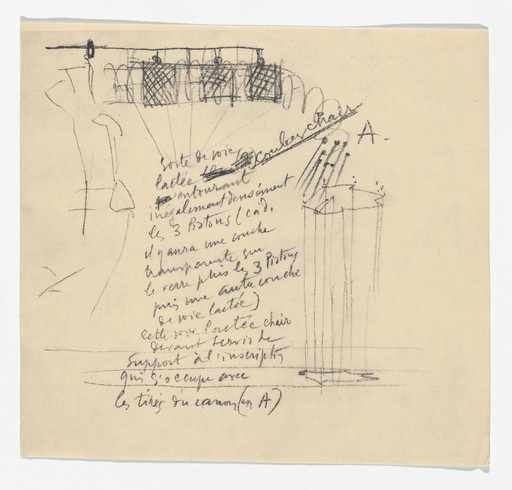 Sorte de voie
lactée couleur chair
A.
entourant
inégalement densément
les 3 Pistons (càd.
il y aura une couche
transparente sur
le verre puis les 3 Pistons
puis une autre couche
de voie lactée)
cette voie lactée chair
devant servir de
Support à l'inscription
qui s'occupe avec
les tirés du canon (en A)